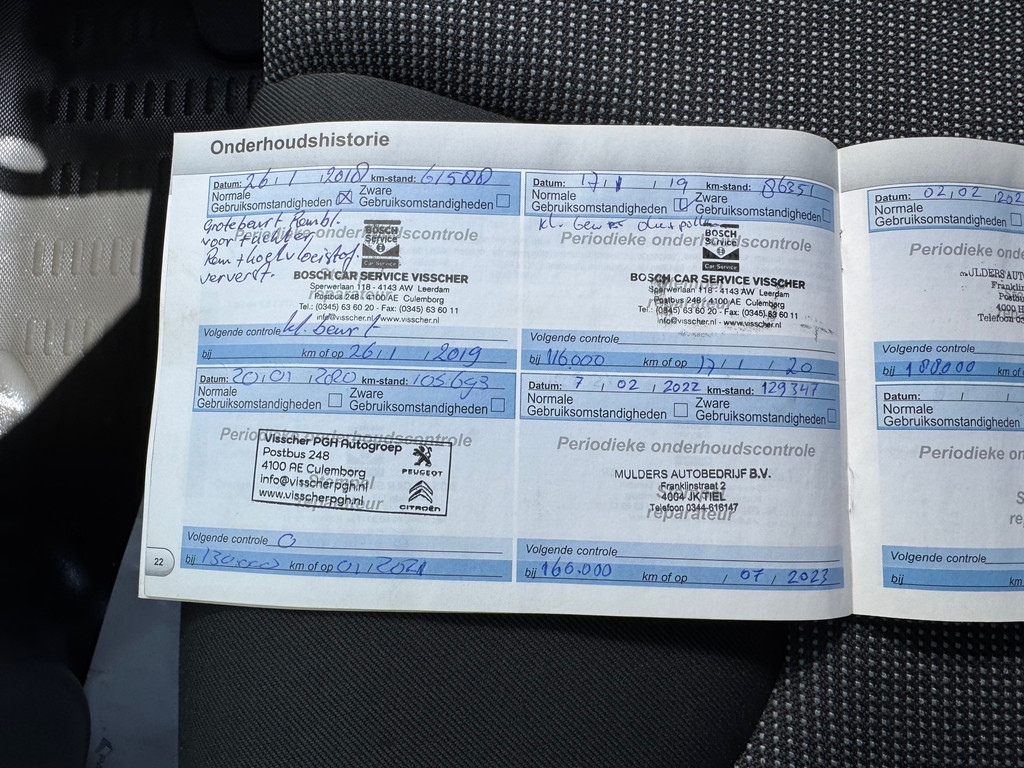 Onderhoudshistorie
Datum: 26 / 1 / 2018 km-stand: 61588
Normale
Gebruiksomstandigheden
Zware
Gebruiksomstandigheden
Periodieke onderhoudscontrole
Grote beurt
voor + achter
Rem + koelvloeistof.
ververst.
BOSCH
Service
Car Service
BOSCH CAR SERVICE VISSCHER
Sperwerlaan 118 - 4143 AW Leerdam
Postbus 248 - 4100 AE Culemborg
Tel.: (0345) 63 60 20 - Fax: (0345) 63 60 11
info@visscher.nl - www.visscher.nl
reparateur
Volgende controle kl. beurt
bij km of op 26 / 1 / 2019
Datum: 17 / 1 / 19 km-stand: 86351
Normale
Gebruiksomstandigheden
Zware
Gebruiksomstandigheden
Periodieke onderhoudscontrole
kl. beurt
BOSCH
Service
Car Service
BOSCH CAR SERVICE VISSCHER
Sperwerlaan 118 - 4143 AW Leerdam
Postbus 248 - 4100 AE Culemborg
Tel.: (0345) 63 60 20 - Fax: (0345) 63 60 11
info@visscher.nl - www.visscher.nl
reparateur
Volgende controle
bij 116.000 km of op 17 / 1 / 20
Datum: 20 / 01 / 2020 km-stand: 105.693
Normale
Gebruiksomstandigheden
Zware
Gebruiksomstandigheden
Periodieke onderhoudscontrole
Visscher PGH Autogroep
Postbus 248
4100 AE Culemborg
info@visscherpgh.nl
www.visscherpgh.nl
PEUGEOT
CITROËN
Stempel
reparateur
Volgende controle O
bij 130000 km of op 01 / 2021
22
Datum: 7 / 02 / 2022 km-stand: 129347
Normale
Gebruiksomstandigheden
Zware
Gebruiksomstandigheden
Periodieke onderhoudscontrole
MULDERS AUTOBEDRIJF B.V.
Franklinstraat 2
4004 JK TIEL
Telefoon 0344-616147
reparateur
Volgende controle
bij 160.000 km of op / 07 / 2023
Datum: 02 / 02 / 202
Normale
Gebruiksomstandigheden
Periodieke onde
MULDERS AUT
Franklin
4000
Telefoon 03
Volgende controle
bij 180000 km of
Datum: / /
Normale
Gebruiksomstandigheden
Periodieke on
S
re
Volgende controle
bij km